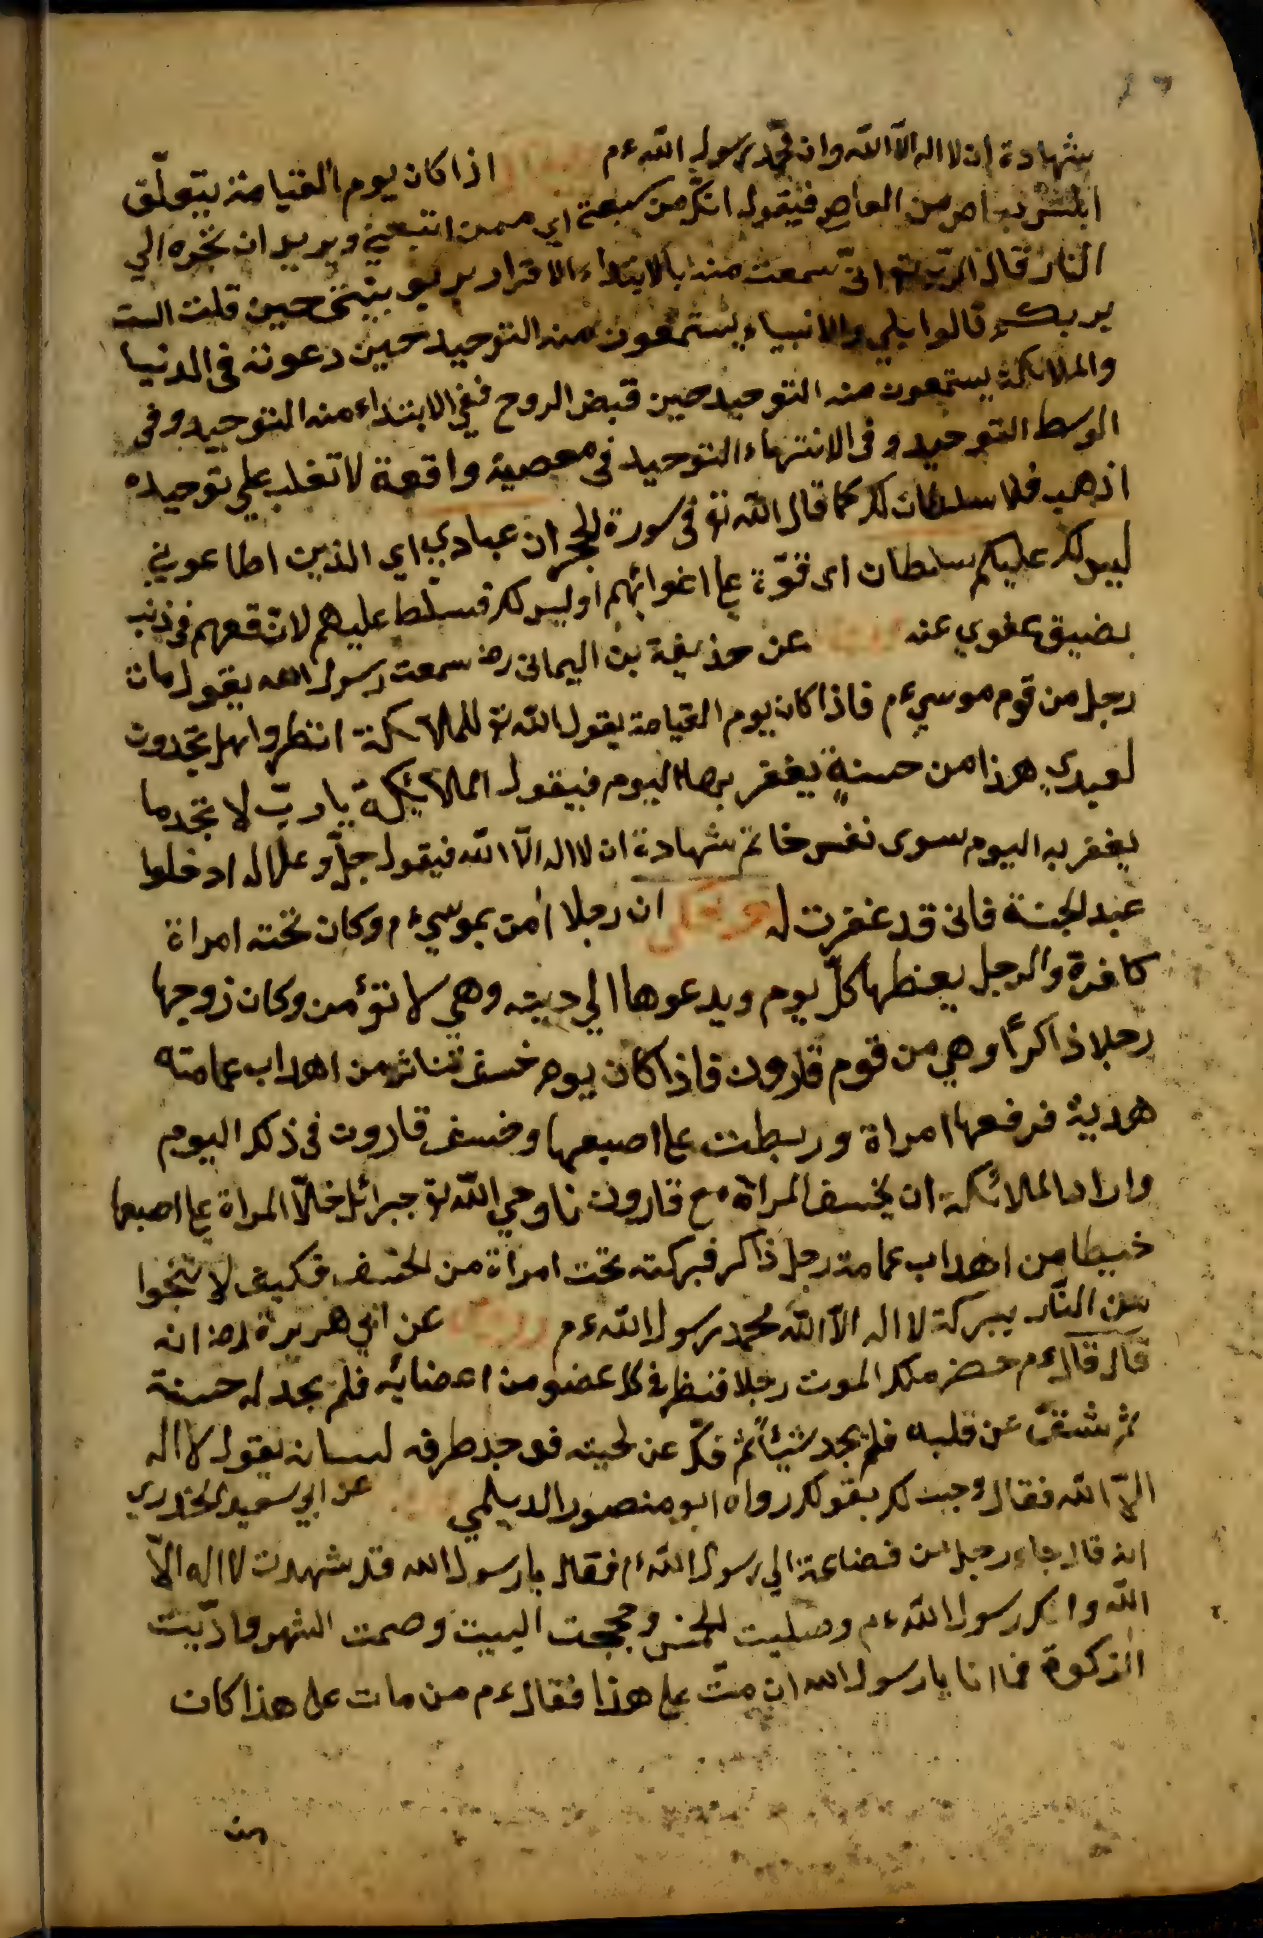 شهادة ان لا اله الا الله وان محمد رسول الله عم اذا كان يوم القيامة يتعلق
ابليس بعاص من العاص فيقول انك من سبعتي اي ممن اتبعني ويريد ان يجره الي
النار قال الرب تع اني سمعت منه بالابتداء الاقرار بربوبيتي حين قلت الست
بربكم قالوا بلي والانبياء يستمعون منه التوحيد حين دعونه في الدنيا
والملائكة يستمعون منه التوحيد حين قبض الروح ففي الابتداء منه التوحيد وفي
الوسط التوحيد وفي الانتهاء التوحيد في معصية واقعة لا تغلب علي توحيده
اذهب فلا سلطان لك كما قال الله تع في سورة الحجر ان عبادي اي الذين اطاعوني
ليس لك عليكم سلطان اى قوة علي اغوائهم او ليس لك تسلط عليهم لان تقعهم في ذنب
يضيق عفوي عنه عن حذيفة بن اليمانى رض سمعت رسول الله يقول مات
رجل من قوم موسي عم فاذا كان يوم القيامة يقول الله تع للملائكة انظروا هل تجدون
لعبدي هذا من حسنة يغفر بها اليوم فيقول الملائكة يا رب لا نجد ما
يغفر به اليوم سوى نفس خاتم شهادة ان لا اله الا الله فيقول جل وعلا له ادخلوا
عبد الجنة فانى قد غفرت له وحكى ان رجلا أمن بموسي عم وكان تحته امراة
كافرة والرجل يعظها كل يوم ويدعوها الي دينه وهي لا تؤمن وكان زوجها
رجلا ذاكرًا وهي من قوم قارون فاذا كان يوم خسف تناثر من اهداب عمامته
هدبة فرفعها امراة وربطت علي اصبعها وخسف قارون في ذلك اليوم
واراد الملائكة ان يخسف المراة مع قارون فاوحي الله تع جبرائل خلا المراة علي اصبعها
خيطا من اهداب عمامة رجل ذاكر فبركته نجت امراة من الخسف فكيف لا تنجوا
من النار ببركة لا اله الا الله محمد رسول الله عم روي عن ابي هريرة رض انه
قال قال عم حضر ملك الموت رجلا فنظر في كل عضو من اعضائه فلم يجد له حسنة
ثم شق عن قلبه فلم يجد شيئًا ثم فك عن لحيته فوجد طرف لسانه يقول لا اله
الا الله فقال وجبت لك بقولك رواه ابو منصور الديلمي عن ابي سعيد الخدري
انه قال جاء رجل من قضاعة الي رسول الله عم فقال يا رسول الله قد شهدت لا اله الا
الله وانك رسول الله عم وصليت الخمس وحججت البيت وصمت الشهر وادّيت
الزكوة فما انا يا رسول الله ان مت علي هذا فقال عم من مات على هذا كان
من